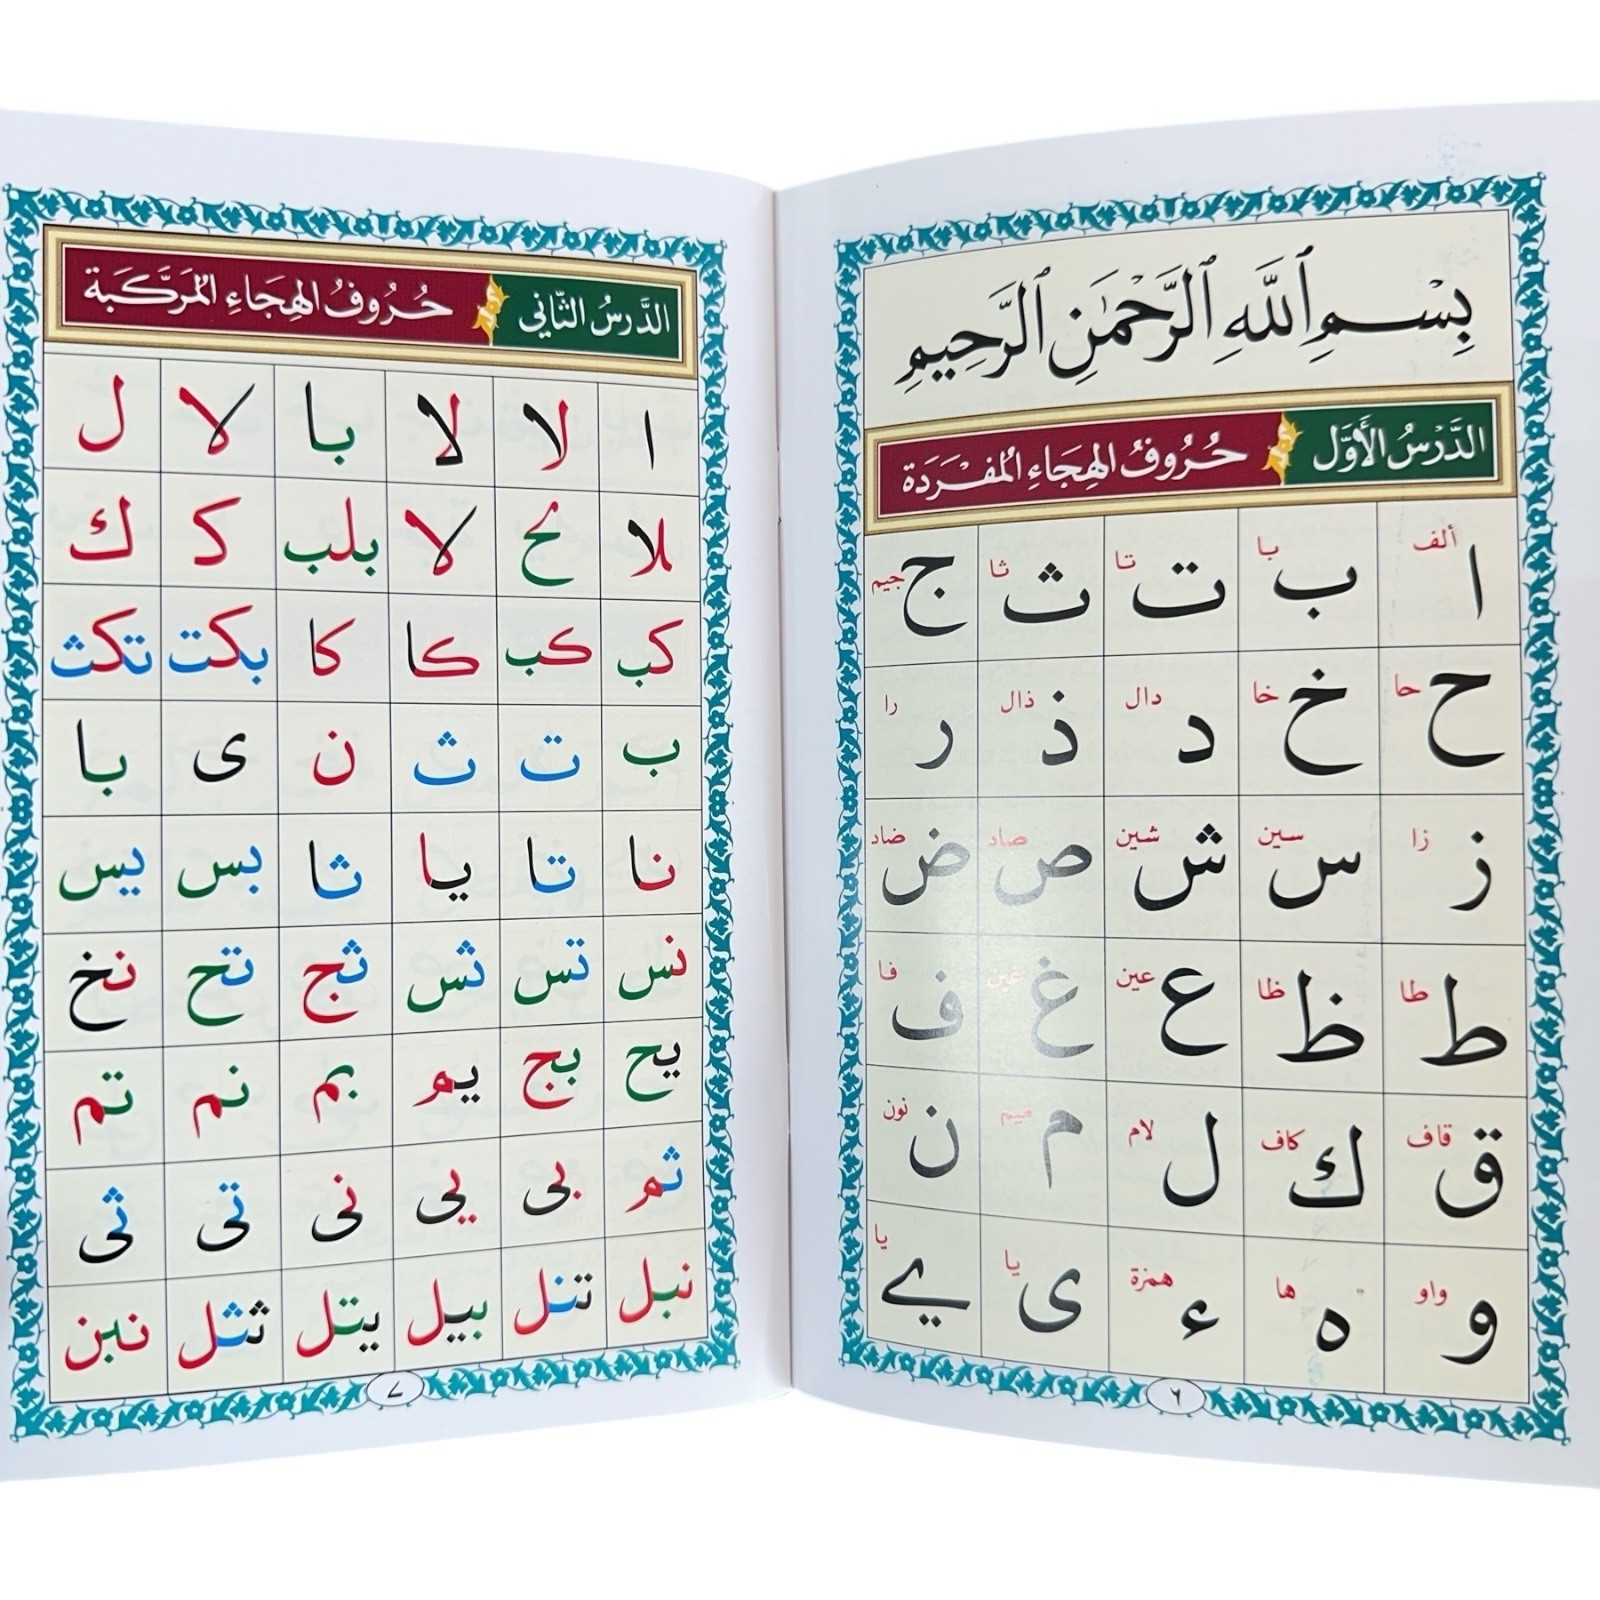 بِسْمِ ٱللَّهِ ٱلرَّحْمَٰنِ ٱلرَّحِيمِ
الدَّرْسُ الأَوَّل حُرُوفُ الهِجَاءِ المُفْرَدَة
ا ألف ب با ت تا ث ثا ج جيم
ح حا خ خا د دال ذ ذال ر را
ز زا س سين ش شين ص صاد ض ضاد
ط طا ظ ظا ع عين غ غين ف فا
ق قاف ك كاف ل لام م ميم ن نون
و واو ه ها ء همزة ى يا ے يا
٦
الدَّرسُ الثَّانِي حُرُوفُ الهِجَاءِ المُرَكَّبَة
ا لا لا با لا ل
ملا لح لا بلب كـ ك
كب كب كا كا بكت تكث
ب ت ث ن ى با
نا تا يا ثا بس يس
نس تس ثس ثج تح نخ
يح بج يم بم نم تم
ثم بى يى نى تى ثى
نبل تنل بيل يتل ثثل نبن
٧